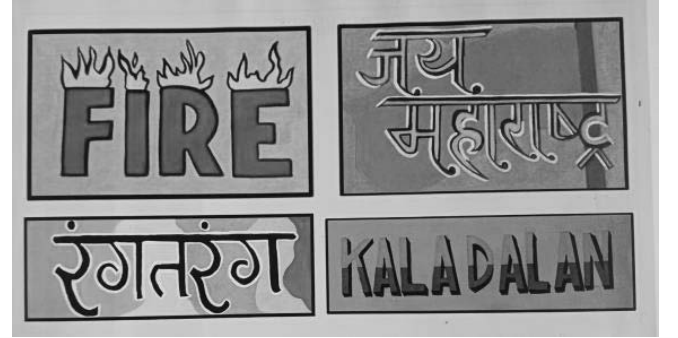 FIRE
जय
महाराष्ट्र
रंगतरंग
KALADALAN